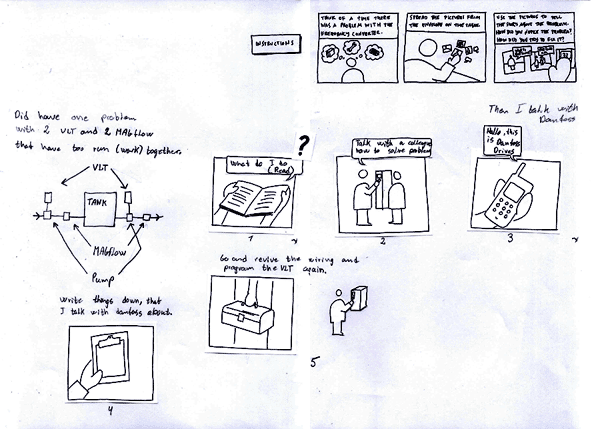 INSTRUCTIONS
THINK OF A TIME THERE
WAS A PROBLEM WITH THE
FREQUENCY CONVERTER.
SPREAD THE PICTURES FROM
THE ENVELOPE ON THE TABLE.
USE THE PICTURES TO TELL
THE STORY ABOUT THE PROBLEM.
HOW DID YOU NOTICE THE PROBLEM?
HOW DID YOU TRY TO FIX IT?
Did have one problem
with 2 VLT and 2 MAGflow
that have too run (work) together.
VLT
TANK
MAGflow
Pump
?
What do I do
(Read)
1
Talk with a colleague
how to solve problem
2
Then I talk with
Danfoss
Hello, this
is Danfoss
Drives
3
Write things down, that
I talk with danfoss about.
4
Go and revive the wiring and
program the VLT again.
5